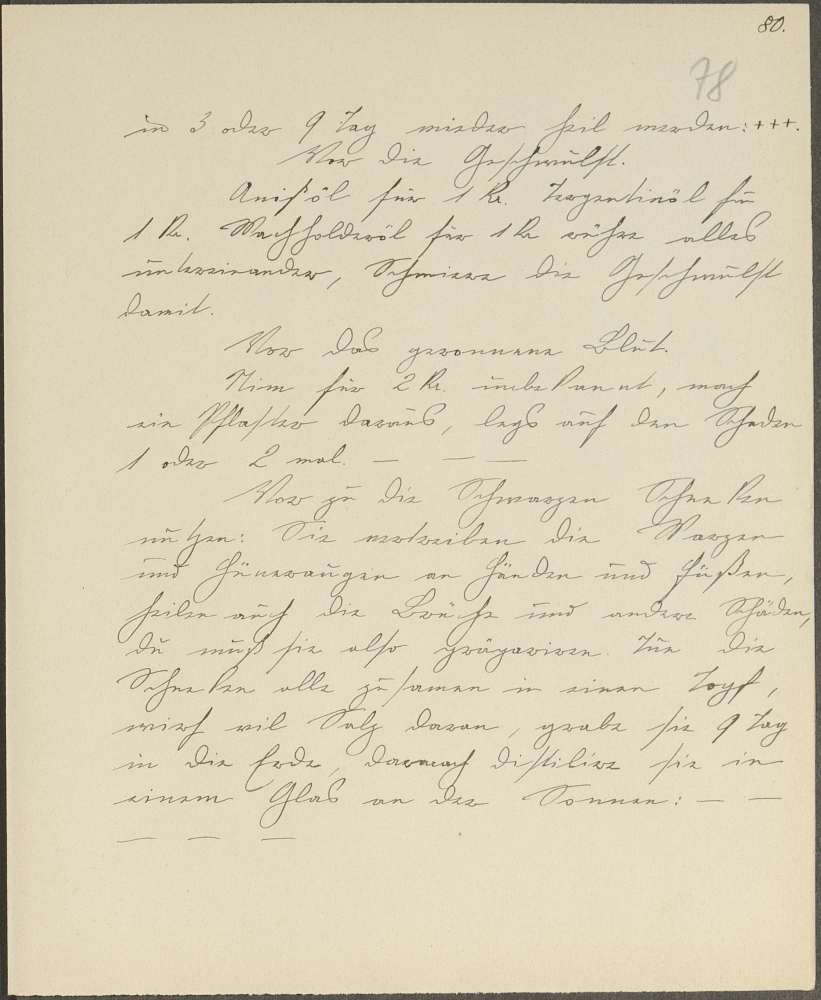 80.
78
in 3 oder 9 Tag wieder heil werden: +++.
Vor die Geschwulst.
Anißöl für 1 Kr. Terpentinöl für
1 Kr. Wachholderöl für 1 Kr rühre alles
untereinander, Schmiere die Geschwulst
damit.
Vor das geronnene Blut.
Nim für 2 Kr. umbekannt, mach
ein Pflaster daraus, legs auf den Schaden
1 oder 2 mal. — — —
Vor zu die Schwarzen Schneken
nutzen: Sie vertreiben die Warzen
und Hüneraugen an Händen und Füßen,
heilen auch die Brüche und andere Schäden,
du muß sie also präpariren. Tue die
Schneken alle zusamen in einen Topf,
wirf vil Salz daran, grabe sie 9 Tag
in die Erde, darnach distilire sie in
einem Glas an der Sonnen: — —
— — —